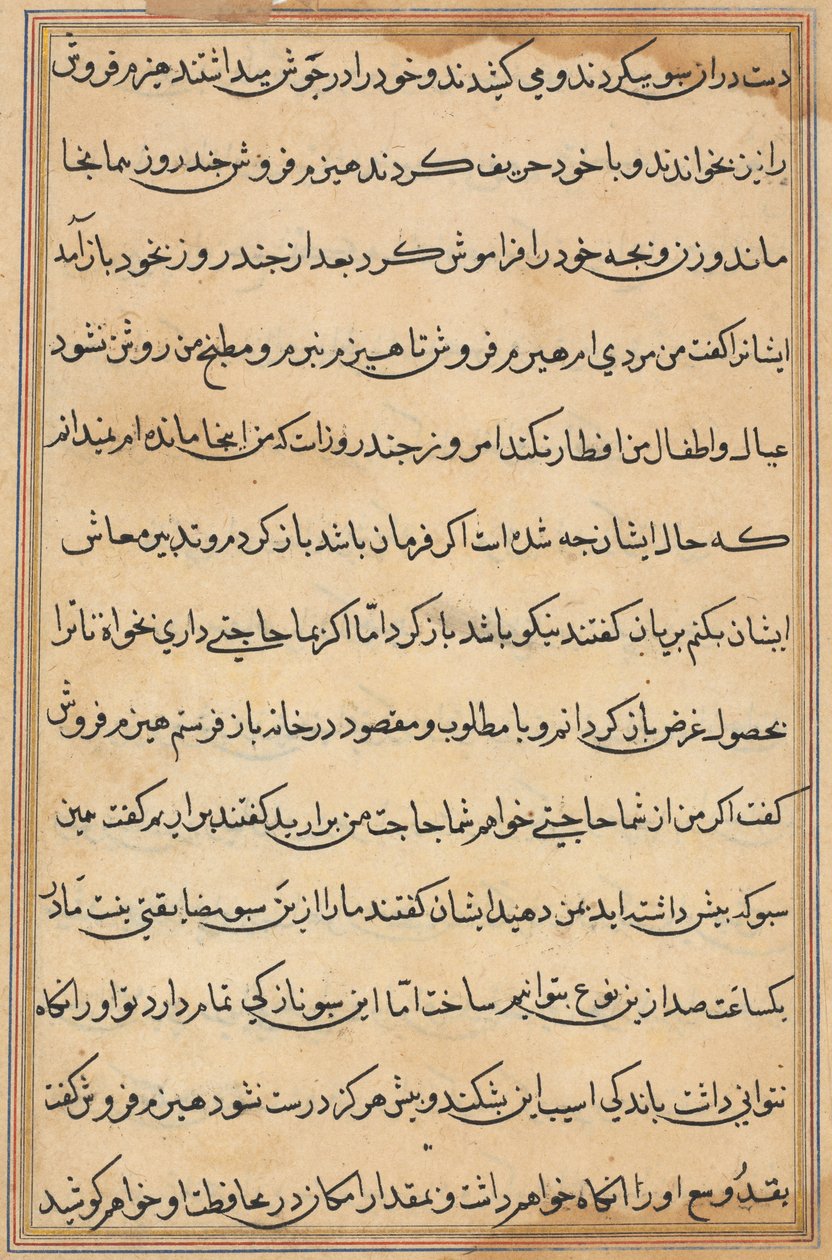 دست در ان سبو میکردند و می کشیدند و خود را در جوش میداشتند هیزم فروش
را نیز بخواندند و با خود حریف کردند هیزم فروش جند روز هما نجا
ماند و زن و بجه خود را فراموش کرد بعد از جند روز بخود باز آمد
ایشانرا کفت من مردی ام هیزم فروش تا هیزم نبرم و مطبخ من روشن نشود
عیال و اطفال من افطار نکنند امروز جند روز است که من اینجا مانده ام نمیدانم
که حال ایشان جه شده است اکر فرمان باشد باز کردم و تدبیر معاش
ایشان بکنم پریان کفتند نیکو باشد باز کرد امّا اکر بما حاجتی داری بخواه تا ترا
بحصول غرض باز کردانم و با مطلوب و مقصود در خانه باز فرستم هیزم فروش
کفت اکر من از شما حاجتی خواهم شما حاجت من برارید کفتند براریم کفت همین
سبو که بیش داشته اید بمن دهید ایشان کفتند ما را ازین سبو مضایقتی نیست مادر
یکساعت صد ازین نوع بتوانیم ساخت امّا این سبو نازکی تمام دارد تو او را نکاه
نتوانی داشت باندکی اسیب این بشکند و بیش هرکز درست نشود هیزم فروش کفت
بقدُ وسع او را نکاه خواهم داشت و بمقدار امکان در محافظت او خواهم کوشید